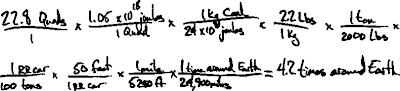 22.8 Quads/1 × 1.05 × 10^18 joules/1 Quad × 1 kg Coal/24 × 10^6 joules × 2.2 Lbs/1 kg × 1 ton/2000 Lbs ×
1 RR car/100 tons × 50 feet/1 RR car × 1 mile/5280 ft × 1 time around Earth/24,900 miles = 42 times around Earth